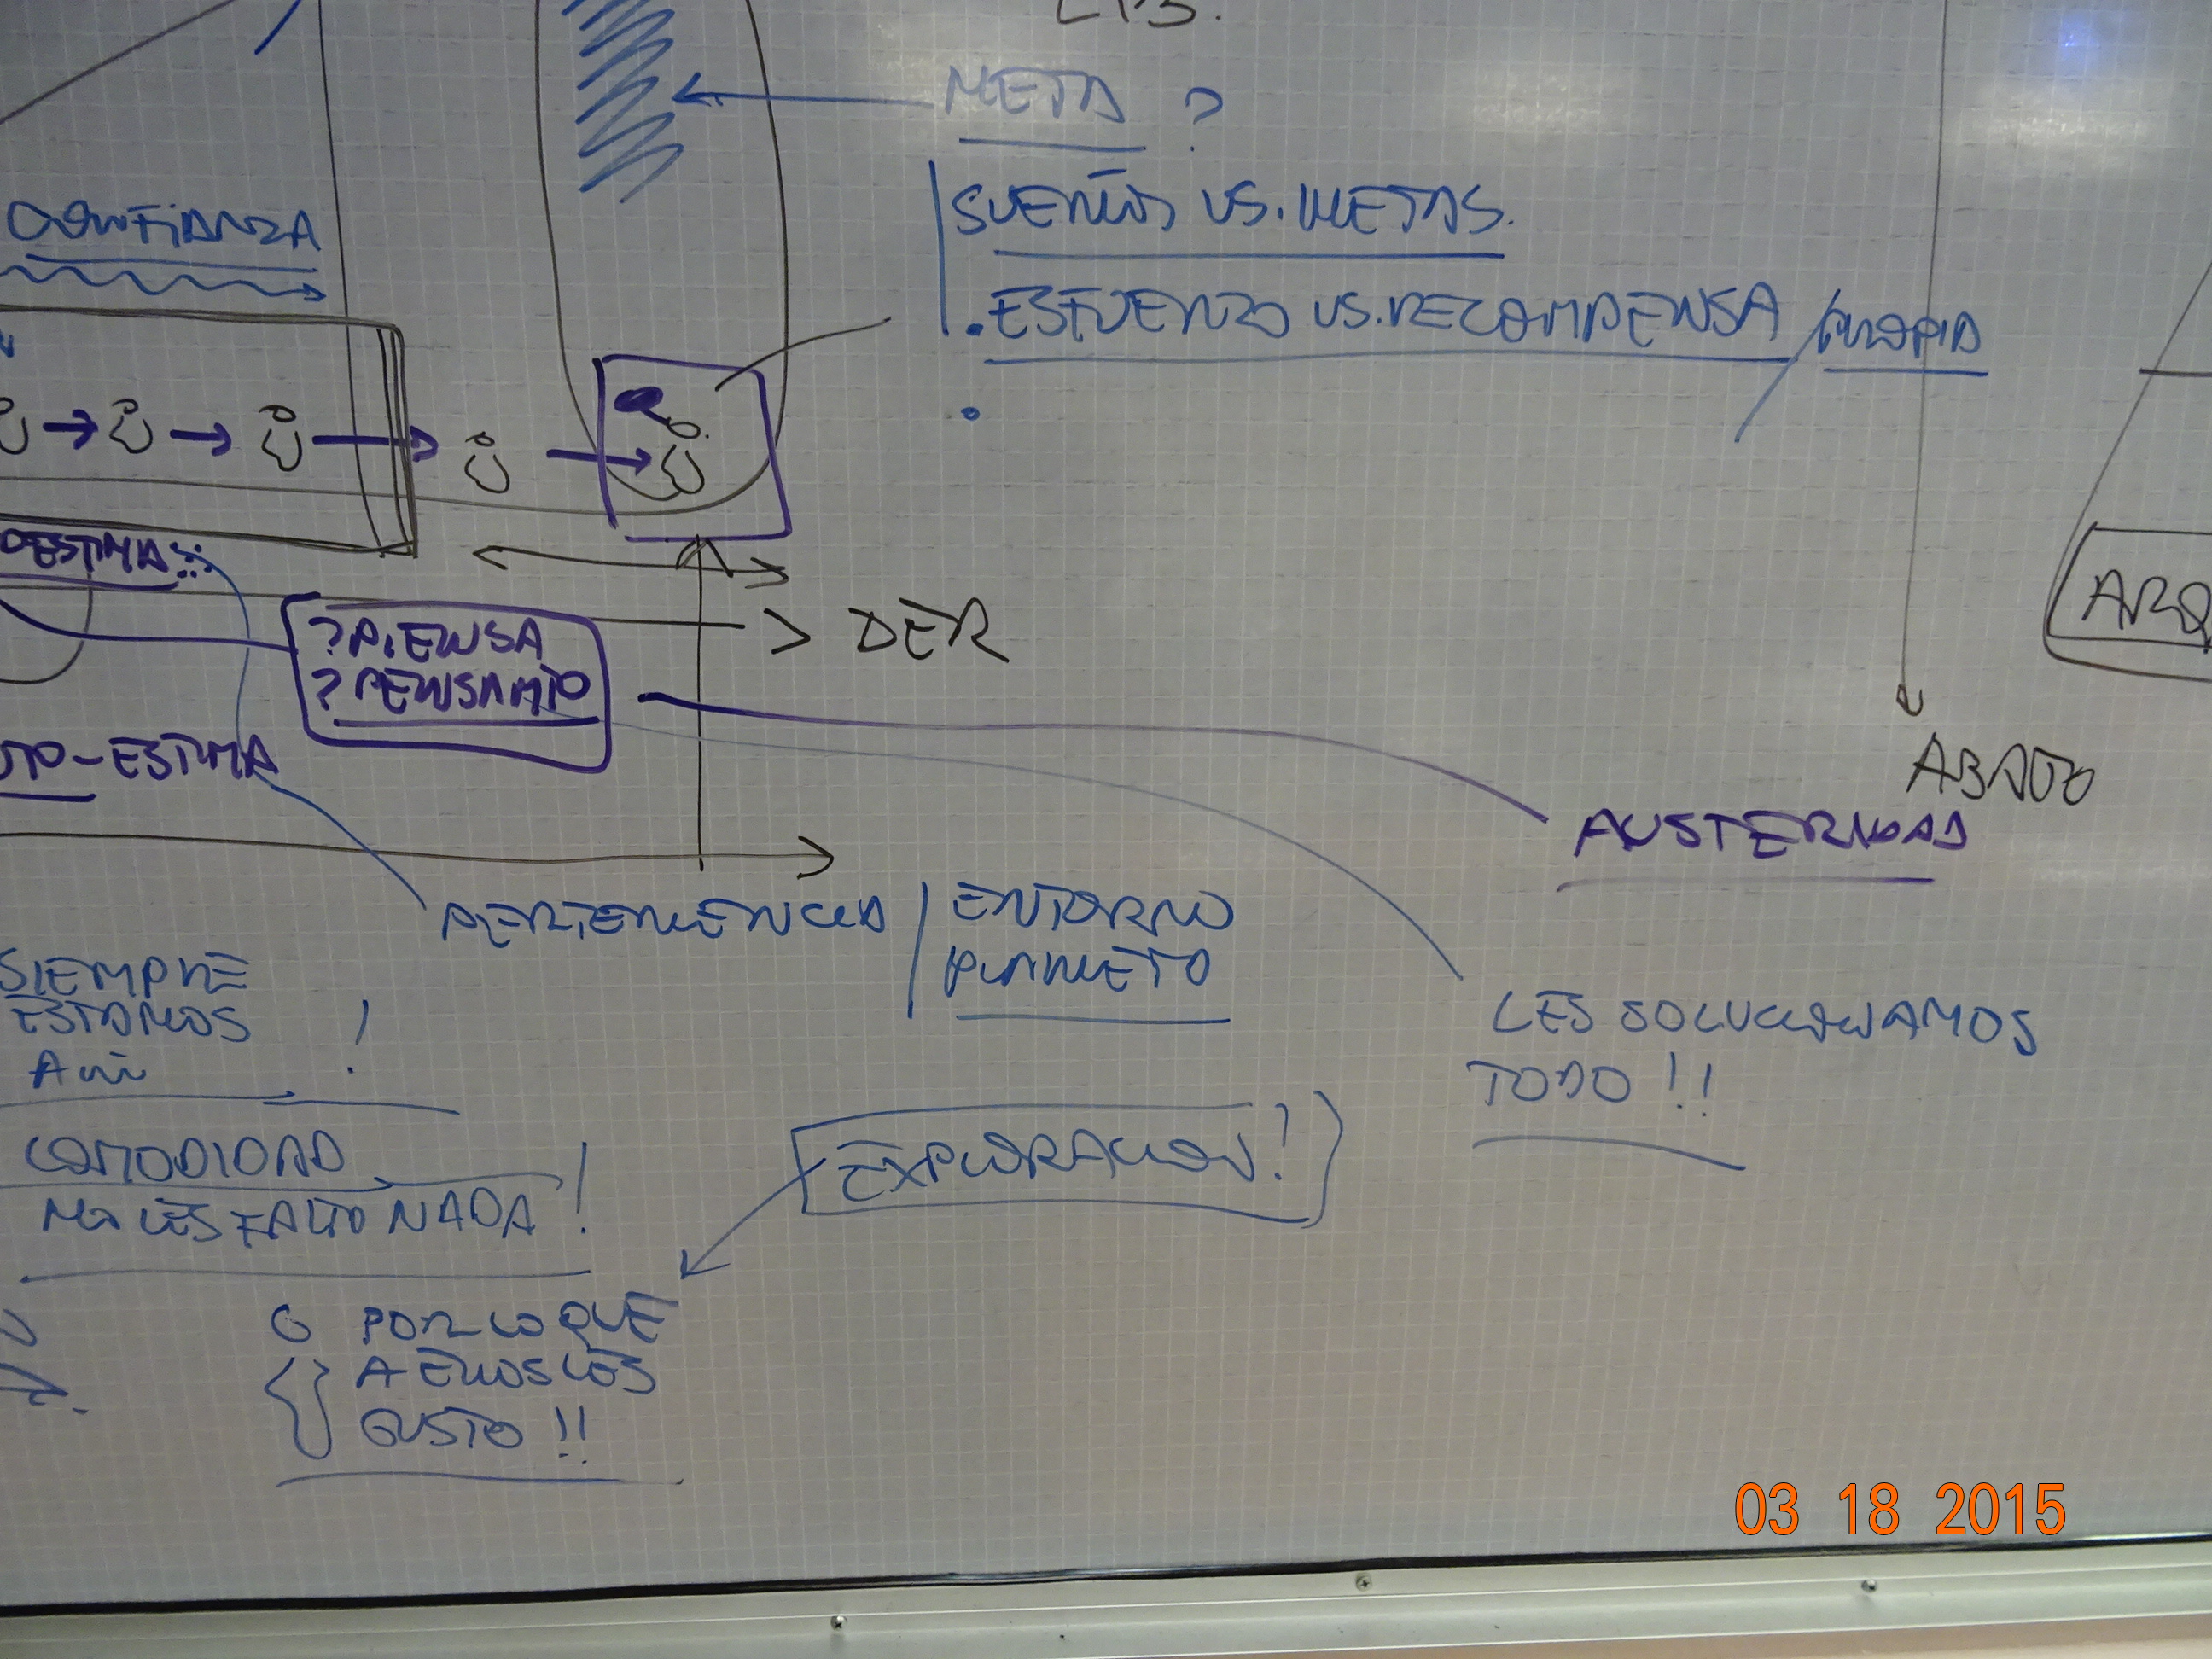 META ?
CONFIANZA
SUEÑOS VS. METAS.
. ESFUERZO VS. RECOMPENSA / PROPIA
.
OESTIMA
? PIENSA
? PENSAMTO
> DER
TO-ESTIMA
ABAJO
AUSTERIDAD
ARQ
PERTENENCIA / ENTORNO
PLANETO
SIEMPRE
ESTAMOS !
AHÍ
LES SOLUCIONAMOS
TODO !!
COMODIDAD
NO LES FALTO NADA !
EXPLORACION !
POR LO QUE
A ELLOS LES
GUSTO !!
03 18 2015